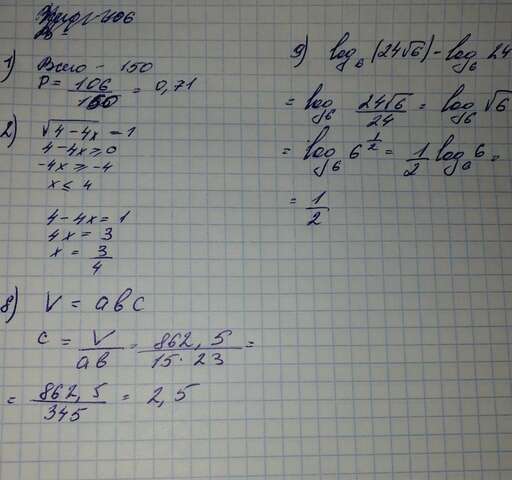 1) Всего - 150
P = 106/150 = 0,71
2) √4-4x = 1
4-4x ≥ 0
-4x ≥ -4
x ≤ 4
4-4x = 1
4x = 3
x = 3/4
8) V = abc
c = V/ab = 862,5/15·23 =
= 862,5/345 = 2,5
9) log₆(24√6) - log₆ 24
= log₆ 24√6/24 = log₆ √6
= log₆ 6^½ = 1/2 log₆ 6 =
= 1/2